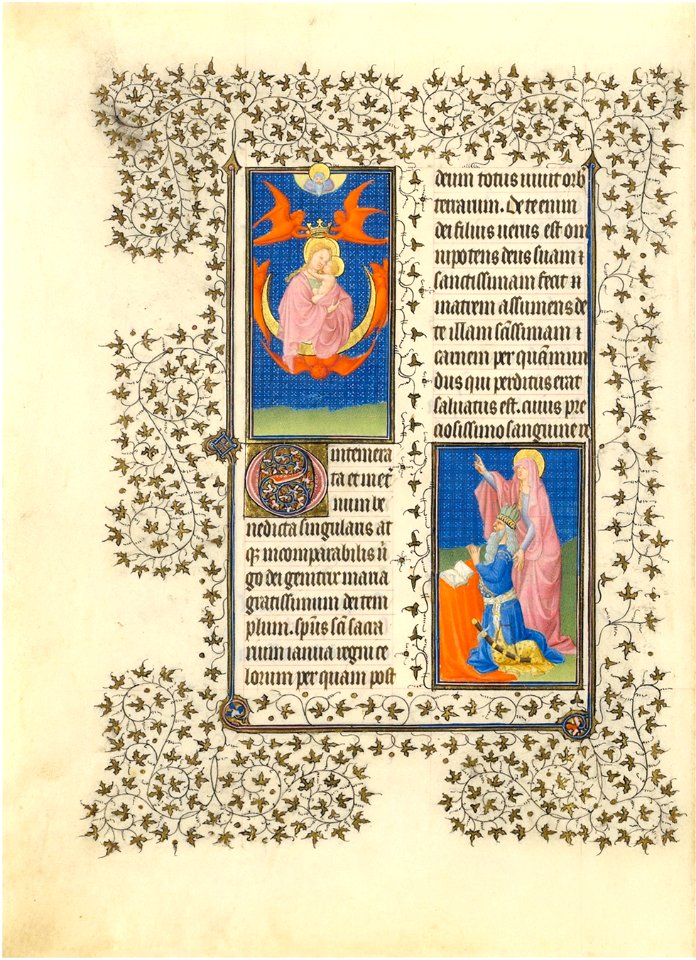 O intemera
ta et in et̾
num be
nedicta singularis at
qꝫ incomparabilis ū
go dei genitrix maria
gratissimum dei tem
plum. spūs sc̄i sacra
rium ianua regni ce
lorum per quam post
deum totus uiuit orb
terrarum. De te enim
dei filius uerus est om
nipotens deus suam ⁊
sanctissimam fecit
matrem assumens de
te illam sc̄issimam ⁊
carnem per quam mun
dus qui perditus erat
saluatus est. cuius pre
ciosissimo sanguine re